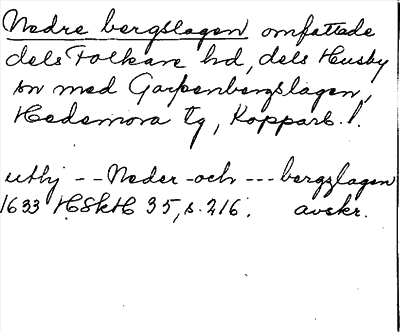 Nedre bergslagen omfattade
dels Folkare hd, dels Husby
sn med Garpenbergslagen,
Hedemora tg, Kopparb. l.
uthj - - Neder - och - - - bergzlagen
1633 HSkH 35, s. 216. avskr.